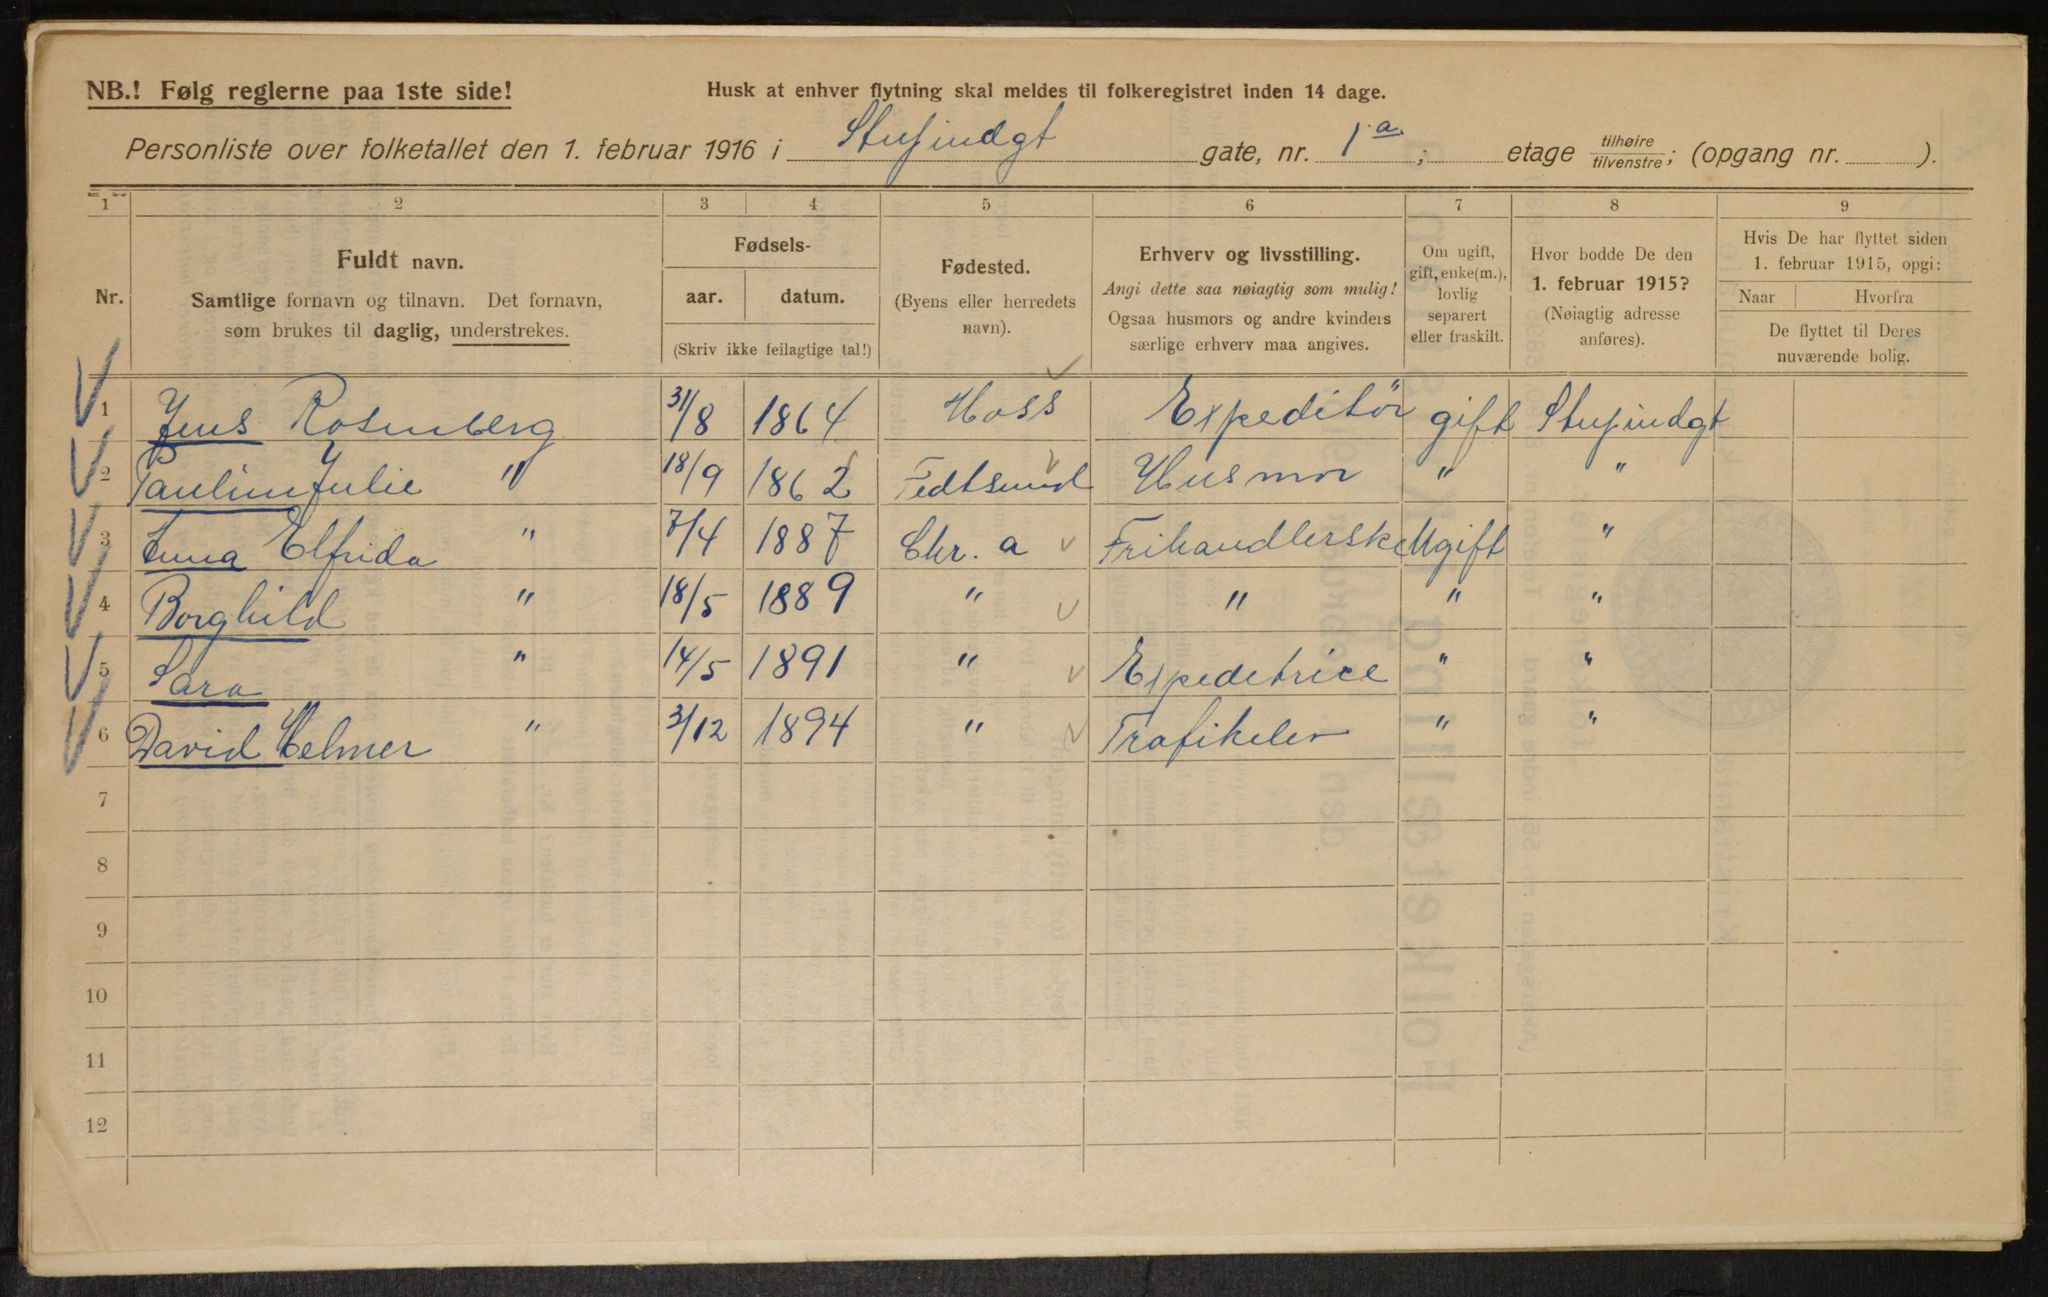 NB.! Følg reglerne paa 1ste side!
Husk at enhver flytning skal meldes til folkeregistret inden 14 dage.
Personliste over folketallet den 1. februar 1916 i Stupindgt gate, nr. 1 a ; etage tilhøire tilvenstre; (opgang nr. ).
1 2 3 4 5 6 7 8 9
Nr.
Fuldt navn.
Samtlige fornavn og tilnavn. Det fornavn,
som brukes til daglig, understrekes.
Fødsels-
aar. datum.
(Skriv ikke feilagtige tal!)
Fødested.
(Byens eller herredets
navn).
Erhverv og livsstilling.
Angi dette saa nøiagtig som mulig!
Ogsaa husmors og andre kvinders
særlige erhverv maa angives.
Om ugift,
gift, enke(m.),
lovlig
separert
eller fraskilt.
Hvor bodde De den
1. februar 1915?
(Nøiagtig adresse
anføres).
Hvis De har flyttet siden
1. februar 1915, opgi:
Naar Hvorfra
De flyttet til Deres
nuværende bolig.
1 Jens Rosenberg 31/8 1864 Moss Expeditör gift Stupindgt
2 Pauline Julie " 18/9 1862 Fedtsund Husmor " "
3 Anna Elfrida " 7/4 1887 Chr. a Frihandlerske Ugift "
4 Borghild " 18/5 1889 " " " "
5 Sara " 14/5 1891 " Expeditrice " "
6 David Helmer " 3/12 1894 " Trafikelev " "
7
8
9
10
11
12